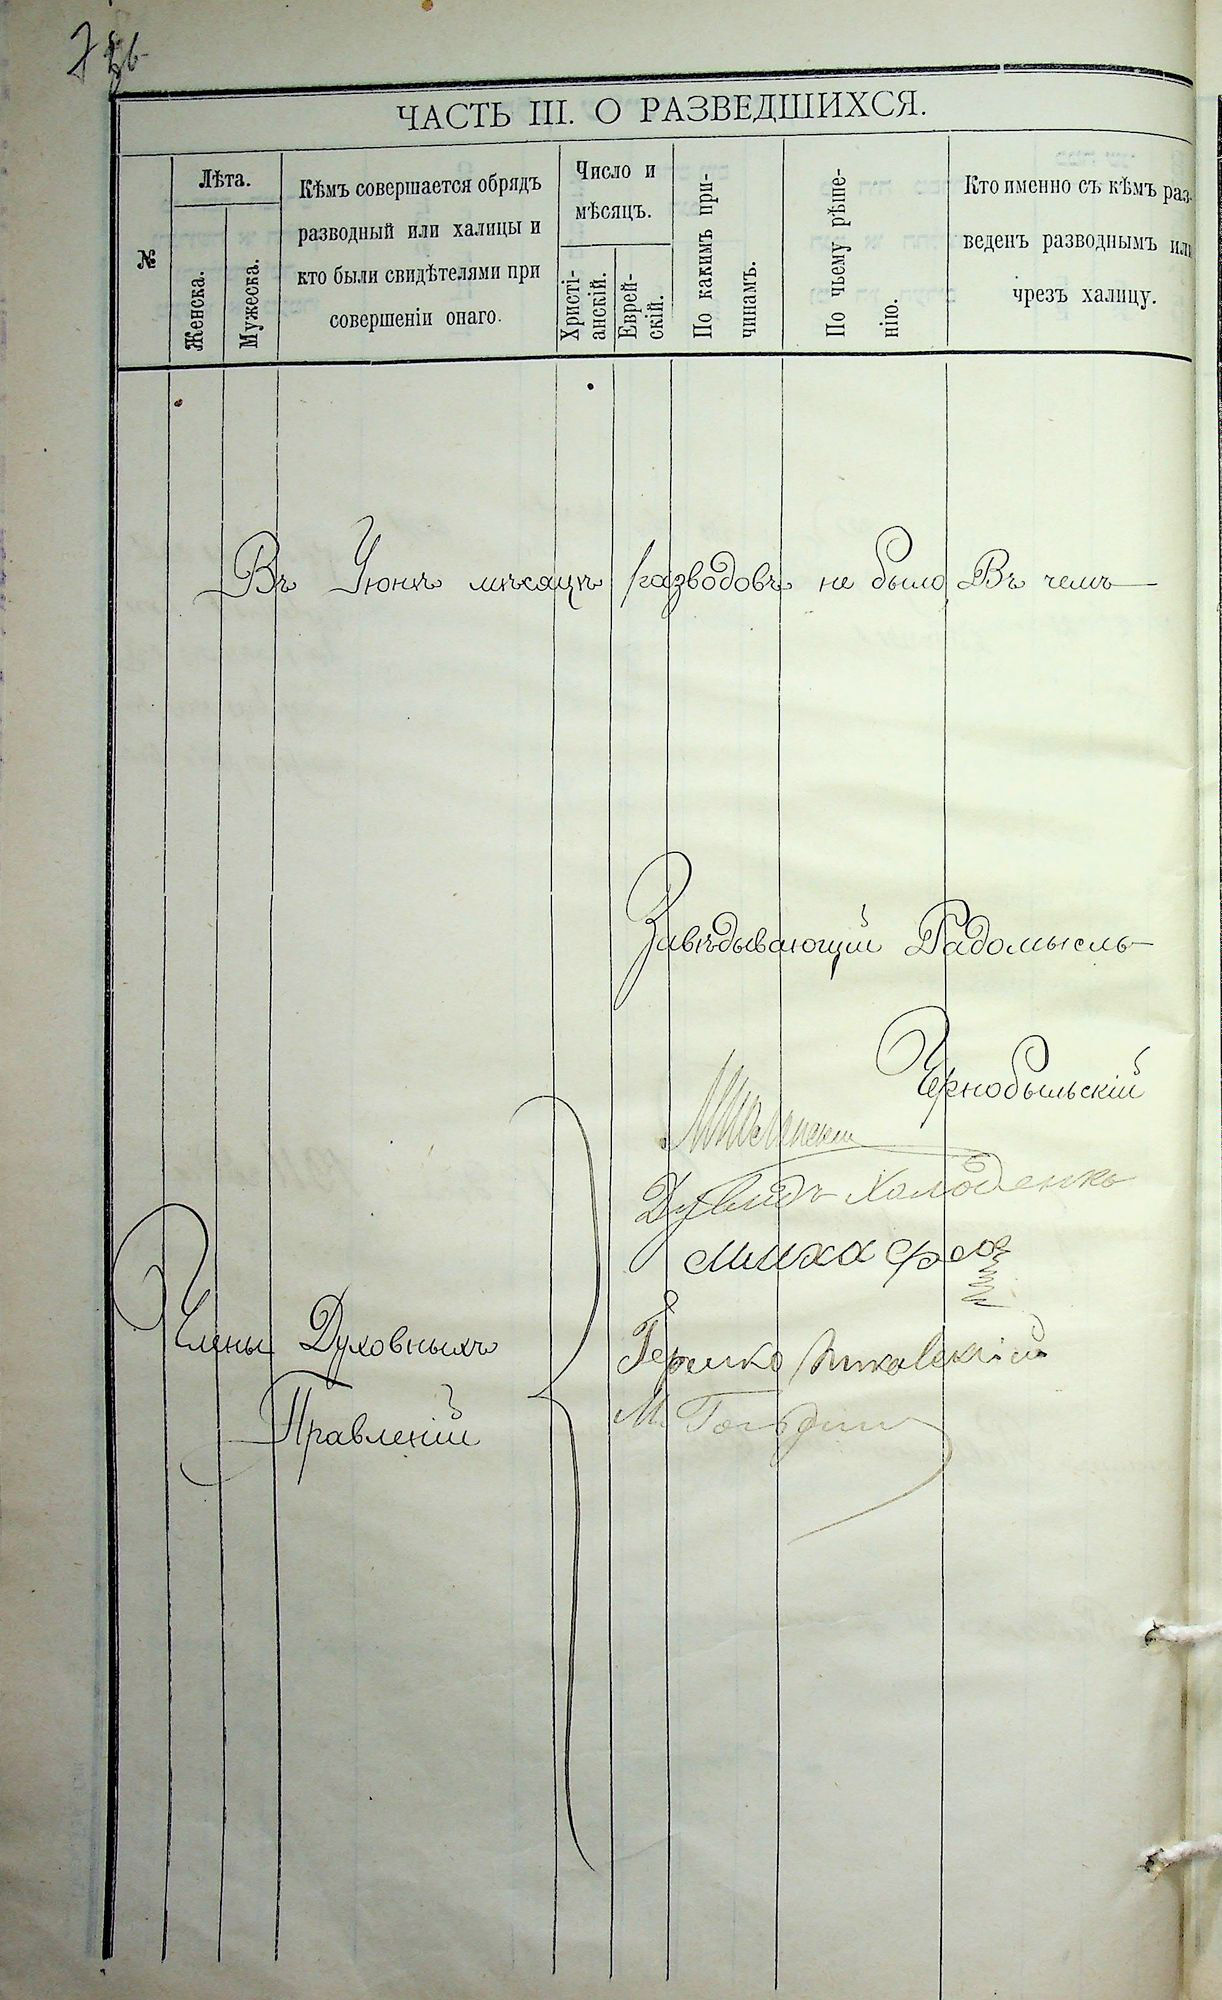 ЧАСТЬ III. О РАЗВЕДШИХСЯ.
№
Лѣта.
Женска.
Мужеска.
Кѣмъ совершается обрядъ
разводный или халицы и
кто были свидѣтелями при
совершеніи онаго.
Число и
мѣсяцъ.
Христі-
анскій.
Еврей-
скій.
По какимъ при-
чинамъ.
По чьему рѣше-
нію.
Кто именно съ кѣмъ раз-
веденъ разводнымъ или
чрезъ халицу.
Въ Іюнѣ мѣсяцѣ разводовъ не было, Въ чемъ
Завѣдывающій Радомысль-
Чернобыльскій
Дувидъ Холоденко
Члены Духовныхъ
Гершко
Правленій
М.